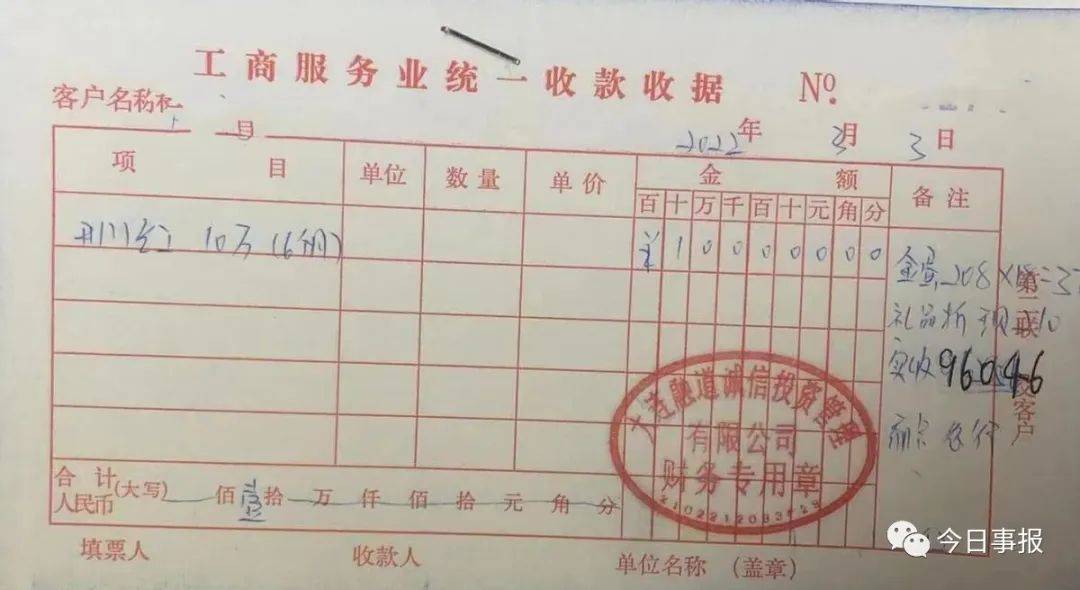 工商服务业统一收款收据 №.
客户名称
2022年3月3日
项目 单位 数量 单价 金额 备注
百十万千百十元角分
开门红 10万(6个月)
¥ 1 0 0 0 0 0 0 0
金蛋 208×
礼品折现
实收96046
第二联 交客户
大连融道诚信投资管理
有限公司
财务专用章
2102212093423
合计
人民币(大写) 佰壹拾 万 仟 佰 拾 元 角 分
填票人 收款人 单位名称 (盖章)
今日事报